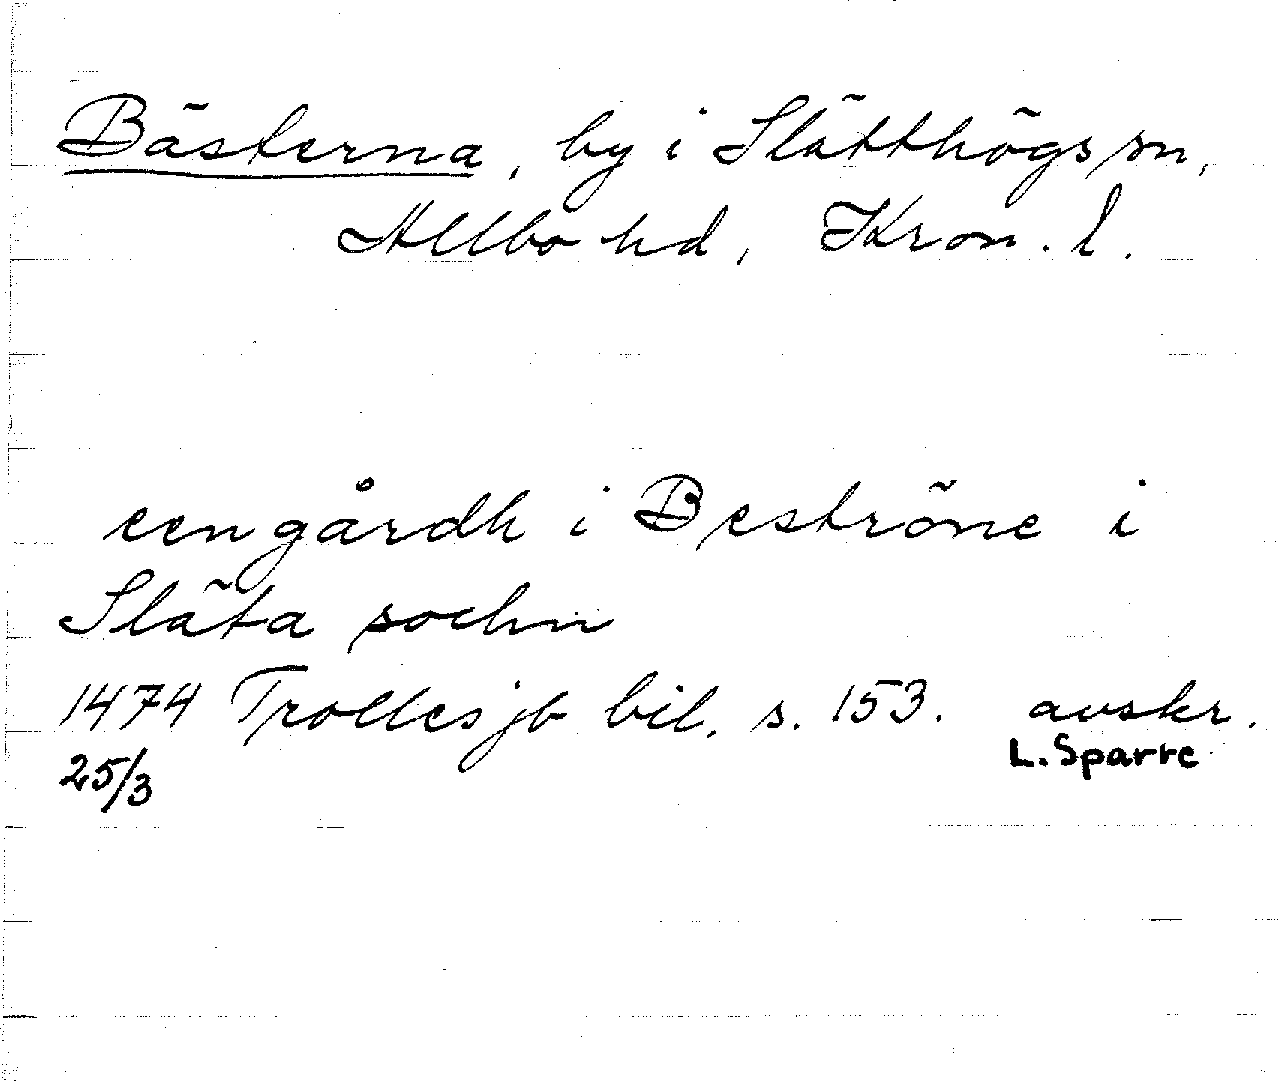 Bästerna, by i Slätthögs sn,
Allbo hd, Kron. l.
een gårdh i Beströne i
Släta sochn
1474 Trolles jb bil. s. 153. avskr.
25/3 L. Sparre